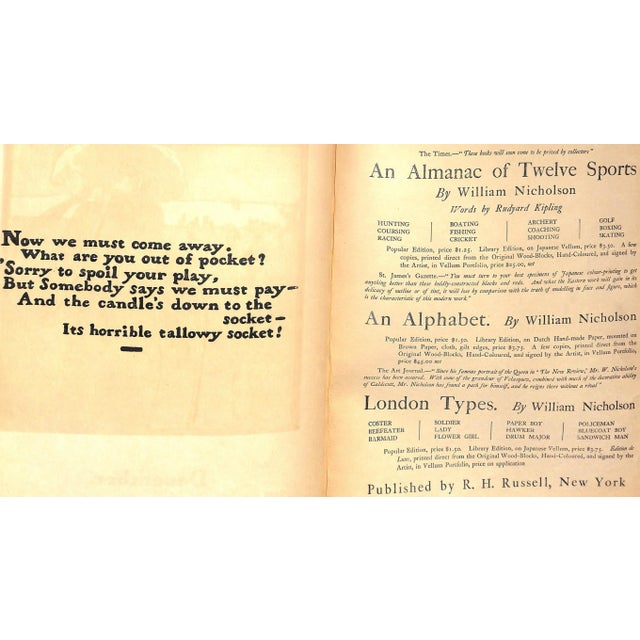 Now we must come away.
What are you out of pocket?
Sorry to spoil your play,
But Somebody says we must pay—
And the candle's down to the
socket—
Its horrible tallowy socket!
The Times.—"These books will soon come to be prized by collectors"
An Almanac of Twelve Sports
By William Nicholson
Words by Rudyard Kipling
HUNTING BOATING ARCHERY GOLF
COURSING FISHING COACHING BOXING
RACING CRICKET SHOOTING SKATING
Popular Edition, price $1.25. Library Edition, on Japanese Vellum, price $3.50. A few
copies, printed direct from the Original Wood-Blocks, Hand-Coloured, and signed by
the Artist, in Vellum Portfolio, price $25.00, net
St. James's Gazette.—"You must turn to your best specimens of Japanese colour-printing to get
anything better than these boldly-constructed blocks and reds. And what the Eastern work will gain in its
delicacy of outline or of tint, it will lose by comparison with the truth of modelling in face and figure, which
is the characteristic of this modern work."
An Alphabet. By William Nicholson
Popular Edition, price $1.50. Library Edition, on Dutch Hand-made Paper, mounted on
Brown Paper, cloth, gilt edges, price $3.75. A few copies, printed direct from the
Original Wood-Blocks, Hand-Coloured, and signed by the Artist, in Vellum Portfolio,
price
The Art Journal.—"Since his famous portrait of the Queen in 'The New Review,' Mr. W. Nicholson's
success has been assured. With some of the grandeur of Velasquez, combined with much of the decorative ability
of Caldecott, Mr. Nicholson has found a path for himself, and he reigns there without a rival"
London Types. By William Nicholson
COSTER SOLDIER PAPER BOY POLICEMAN
BEEFEATER LADY HAWKER BLUECOAT BOY
BARMAID FLOWER GIRL DRUM MAJOR SANDWICH MAN
Popular Edition, price $1.50. Library Edition, on Japanese Vellum, price $3.75. Edition de
Luxe, printed direct from the Original Wood-Blocks, Hand-Coloured, and signed by the
Artist, in Vellum Portfolio, price on application
Published by R. H. Russell, New York